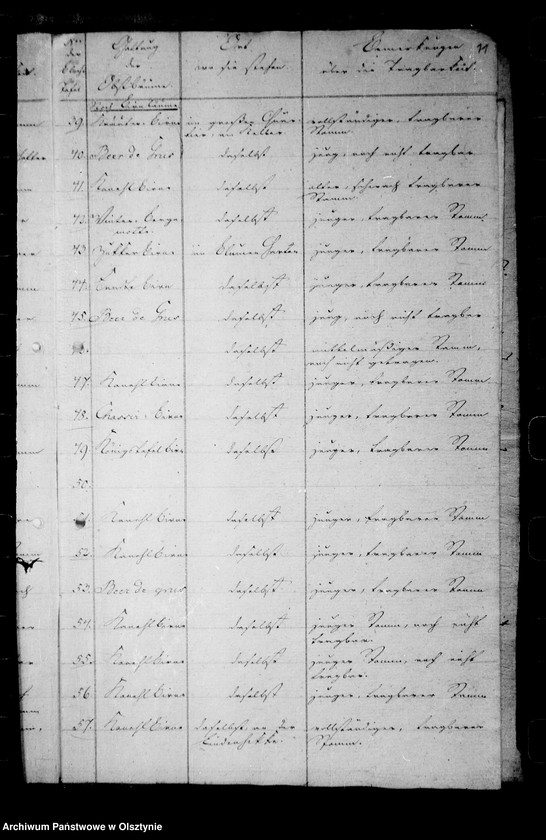 11
Nro der Blech Tafel | Gattung der Obstbäume | Ort wo sie stehen | Bemerkungen über die Tragbarkeit
Birnbäume
39. birne | im großen | vollständiger, tragbarer Stamm
40. Beer de Grus | daselbst | jung, noch nicht tragbar
41. Kanehl birne | daselbst | alter, tragbarer Stamm
42. Winter berga motte | daselbst | junger, tragbarer Stamm
43. Zukker birne | im Blumen Garten | junger, tragbarer Stamm
44. birn | daselbst | junger, tragbarer Stamm
45. Beer de Grus | daselbst | jung, noch nicht tragbar
46. | daselbst | mittelmäßiger Stamm, noch nicht getragen.
47. Kanehl birne | daselbst | junger, tragbarer Stamm
48. birne | daselbst | junger, tragbarer Stamm
49. Königstafel birn | daselbst | junger, tragbarer Stamm
50.
51. Kanehl birne | daselbst | junger, tragbarer Stamm
52. Kanehl birne | daselbst | junger, tragbarer Stamm
53. Beer de grus | daselbst | junger, tragbarer Stamm
54. Kanehl birne | daselbst | junger Stamm, noch nicht
tragbar.
55. Kanehl birne | daselbst | junger Stamm, noch nicht
tragbar.
56 Kanehl birne | daselbst | junger, tragbarer Stamm
57. Kanehl birne | daselbst, an der | vollständiger, tragbarer
Lindenhekke. | Stamm.
Archiwum Państwowe w Olsztynie